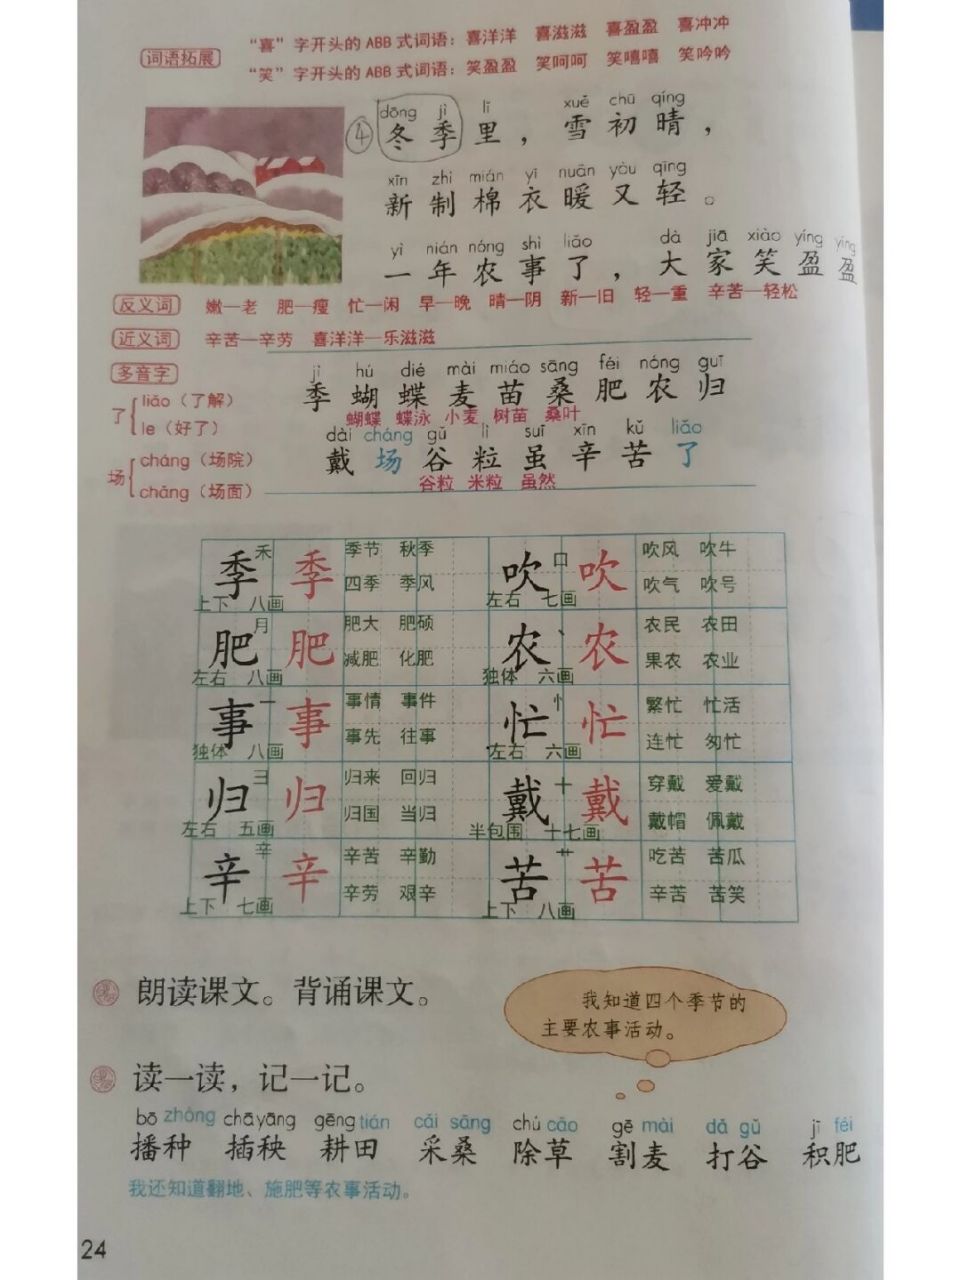 词语拓展
“喜”字开头的ABB式词语：喜洋洋 喜滋滋 喜盈盈 喜冲冲
“笑”字开头的ABB式词语：笑盈盈 笑呵呵 笑嘻嘻 笑吟吟
dōng jì lǐ xuě chū qíng
④ 冬季里，雪初晴，
xīn zhì mián yī nuǎn yòu qīng
新制棉衣暖又轻。
yì nián nóng shì liǎo dà jiā xiào yíng yíng
一年农事了，大家笑盈盈
反义词 嫩—老 肥—瘦 忙—闲 早—晚 晴—阴 新—旧 轻—重 辛苦—轻松
近义词 辛苦—辛劳 喜洋洋—乐滋滋
多音字
了 liǎo（了解）
le（好了）
场 cháng（场院）
chǎng（场面）
jì hú dié mài miáo sāng féi nóng guī
季 蝴 蝶 麦 苗 桑 肥 农 归
蝴蝶 蝶泳 小麦 树苗 桑叶
dài cháng gǔ lì suī xīn kǔ liǎo
戴 场 谷 粒 虽 辛 苦 了
谷粒 米粒 虽然
季 禾 季 季节 秋季 吹 口 吹 吹风 吹牛
上下 八画 四季 季风 左右 七画 吹气 吹号
肥 月 肥 肥大 肥硕 农 丶 农 农民 农田
左右 八画 减肥 化肥 独体 六画 果农 农业
事 一 事 事情 事件 忙 忄 忙 繁忙 忙活
独体 八画 事先 往事 左右 六画 连忙 匆忙
归 彐 归 归来 回归 戴 十 戴 穿戴 爱戴
左右 五画 归国 当归 半包围 十七画 戴帽 佩戴
辛 辛 辛 辛苦 辛勤 苦 艹 苦 吃苦 苦瓜
上下 七画 辛劳 艰辛 上下 八画 辛苦 苦笑
朗读课文。背诵课文。
我知道四个季节的
主要农事活动。
读一读，记一记。
bō zhòng chā yāng gēng tián cǎi sāng chú cǎo gē mài dǎ gǔ jī féi
播种 插秧 耕田 采桑 除草 割麦 打谷 积肥
我还知道翻地、施肥等农事活动。
24